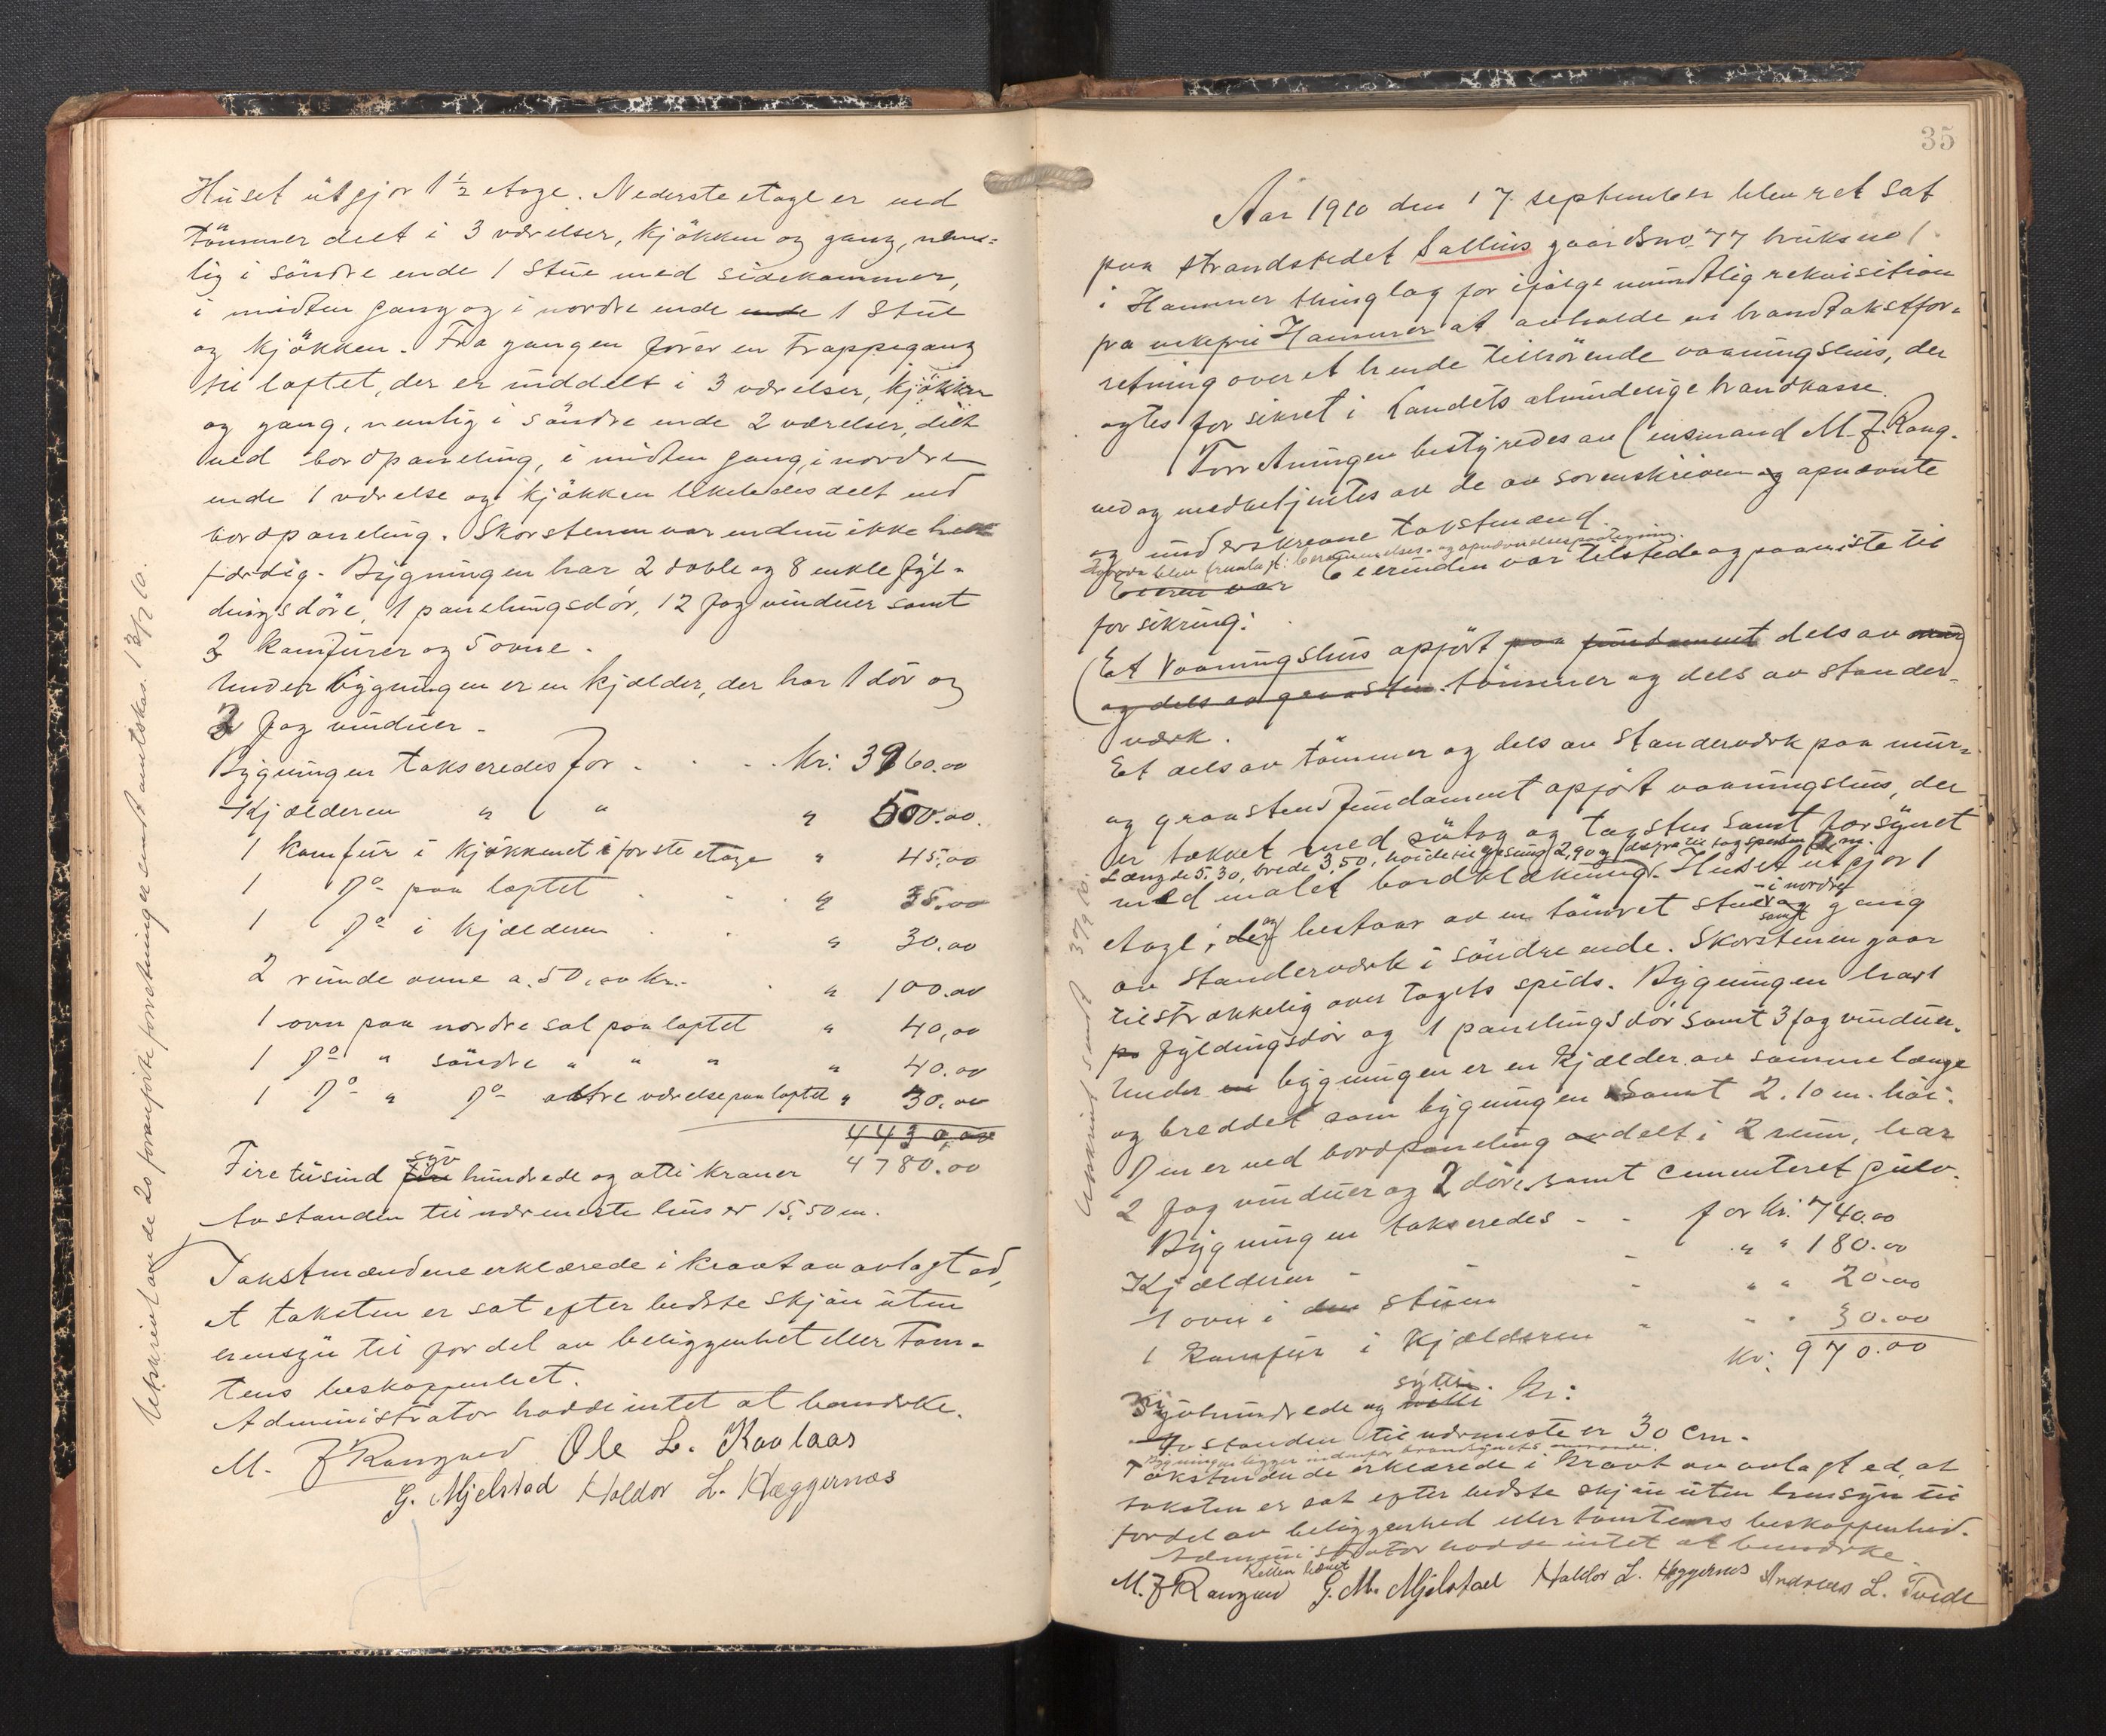 Huset utgjør 1½ etage. Nederste etage er ved
tømmer delt i 3 værelser, kjøkken og gang, nem-
lig i søndre ende 1 stue med sidekammer,
i midten gang og i nordre ende ende 1 stue
og kjøkken. Fra gangen fører en trappegang
til loftet, der er inddelt i 3 værelser, kjøkken
og gang, nemlig i søndre ende 2 værelser, delt
ved bordpaneling, i midten gang, i nordre
ende 1 værelse og kjøkken likeledes delt ved
bordpaneling. Skorstenen var endnu ikke helt
færdig. Bygningen har 2 doble og 8 enkle fyl-
dingsdøre, 1 panelingsdør, 12 fag vinduer samt
2 komfurer og 5 ovne.
Under bygningen er en kjælder, der har 1 dør og
3 fag vinduer.
Bygningen takseredes for . . . kr. 3960.00
Kjælderen " " " 500.00.
1 komfur i kjøkkenet i første etage " 45,00
1 Do paa loftet . . " 35.00
1 Do i kjælderen . . " 30.00
2 runde ovne a. 50,00 kr. . " 100.00
1 ovn paa nordre sal paa loftet " 40,00
1 Do " søndre " " " " 40.00
1 Do " Do østre værelse paa loftet " 30,00
4430,00
syv
Fire tusind fire hundrede og otti kroner 4780.00
Avstanden til nærmeste hus er 15,50 m.
Takstmændene erklærede i kraft av avlagt ed,
at taksten er sat efter bedste skjøn uten
hensyn til fordel av beliggenhet eller tom-
tens beskaffenhet.
Administrator hadde intet at bemærke.
M. J Rangved Ole L. Kvalaas
G. Mjelstad Haldor L. Hæggernæs
Utskrift av de 20 foranførte forretninger sendt amtskas. 13/9 10.
35
Aar 1910 den 17 september blev ret sat
paa strandstedet Salhus gaardsno. 77 bruksno 1
i Hammer thinglag for ifølge mundtlig rekvisition
fra enkefru Hammer at avholde en brandtakstfor-
retning over et hende tilhørende vaaningshus, der
agtes forsikret i Landets almindelige brandkasse.
Forretningen bestyredes av lensmand M. J. Rang-
ved og medbetjentes av de av sorenskriveren og opnævnte
og underskrevne takstmænd.
Eieren var Eierinden var tilstede og paaviste til
forsikring:
Et Vaaningshus opført paa fundament dels av mur
og dels av graasten tømmer og dels av stander-
værk.
Et dels av tømmer og dels av standerværk paa mur-
og graastensfundament opført vaaningshus, der
er tækket med sutag og tagsten samt forsynet
Længde 5,30, brede 3,50, høide til gesims 2,90 og derfra til tagspidsen 2 m.
med malet bordklædning. Huset utgjør 1
i nordre
etage, der og bestaar av en tømret stue og gang
samt
av standerværk i søndre ende. Skorstenen gaar
tilstrækkelig over tagets spids. Bygningen har 1
fyldingsdør og 1 panelingsdør samt 3 fag vinduer.
Under bygningen er en kjælder av samme længe
og bredde som bygningen samt 2.10 m. høi.
Den er ved bordpaneling avdelt i 2 rum, har
2 fag vinduer og 2 døre samt cementeret gulv.
Bygningen takseredes - - for kr. 740.00
Kjælderen - - " " 180.00
1 ovn i den stuen - " " 20.00
1 komfur i kjælderen - " " 30.00
kr: 970.00
sytti
Nihundrede og kr:
Avstanden til nærmeste er 30 cm.
Bygningen ligger indenfor brandsynets omraade.
Takstmændene erklærede i kraft av avlagt ed, at
taksten er sat efter bedste skjøn uten hensyn til
fordel av beliggenhed eller tomtens beskaffenhed.
Administrator hadde intet at bemærke.
Retten hævet
M. J Rangved G. M. Mjelstad Haldor L. Hæggernæs Andreas L. Tvedt
Utskrift sendt 30/9 10.